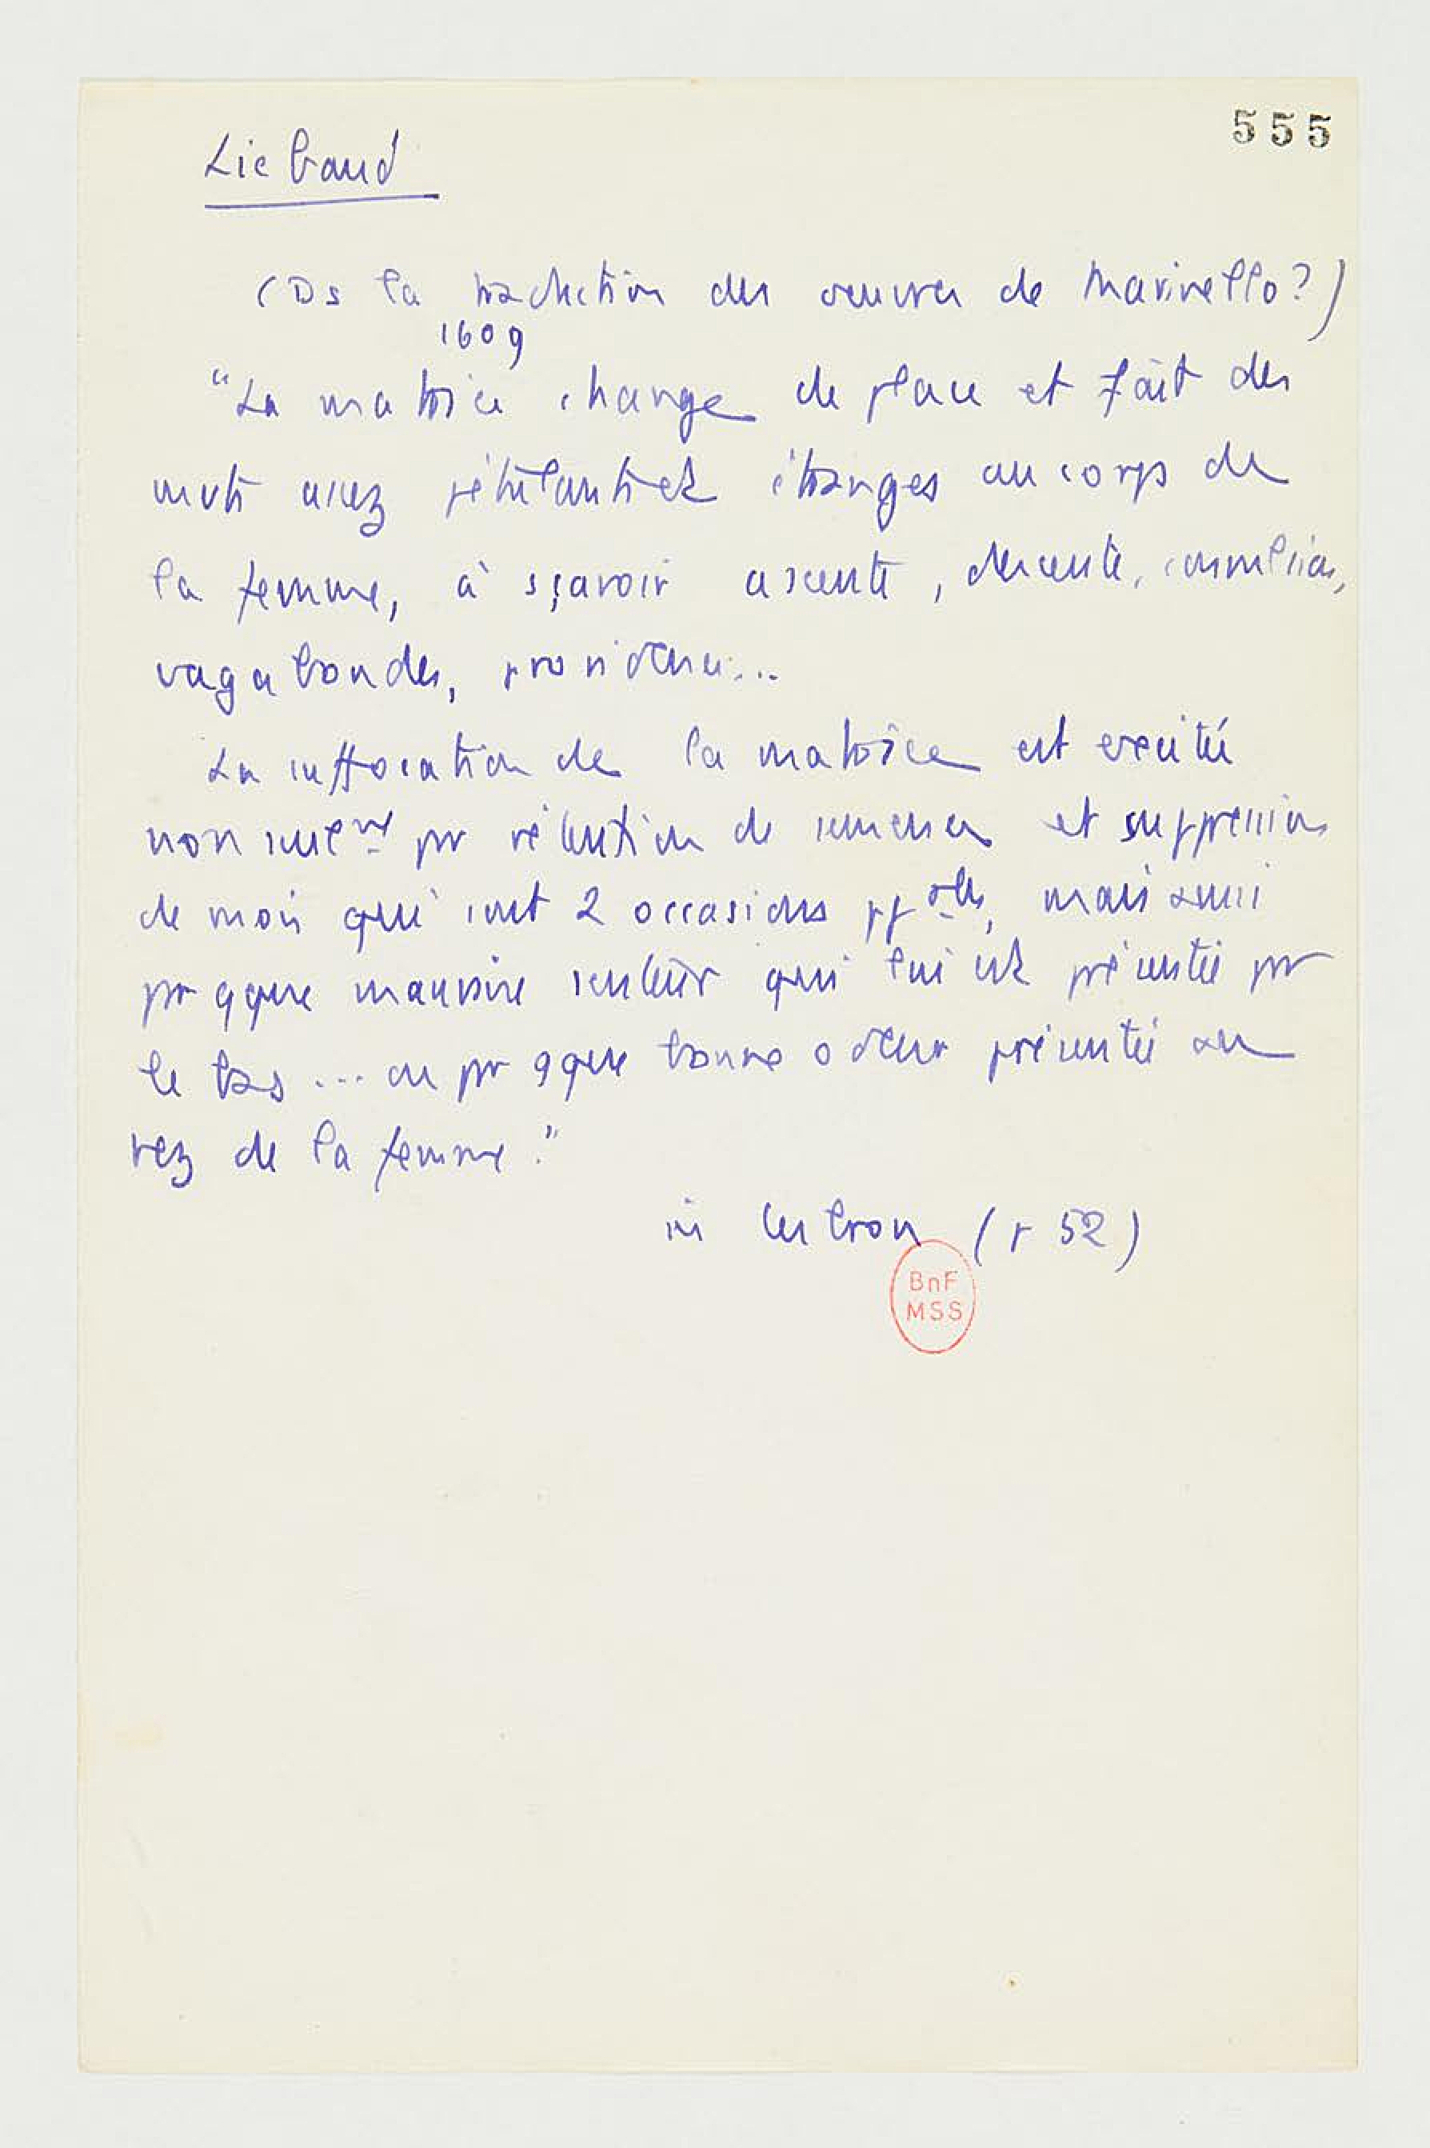 555
Liebaud
(Ds la traduction des oeuvres de Marinello?)
1609
"La matrice change de place et fait des
mvts assez pétulants et étranges au corps de
la femme, à sçavoir ascente, descente, convulsions,
vagabondes, procidence...
La suffocation de la matrice est excitée
non seulemt pr rétention de semences et suppression
de mois qui sont 2 occasions ppales, mais aussi
pr qque mauvaise senteur qui lui est présentée pr
le bas ... ou pr qque bonne odeur présentée au
nez de la femme."
in Lesbron (p 52)
BnF
MSS